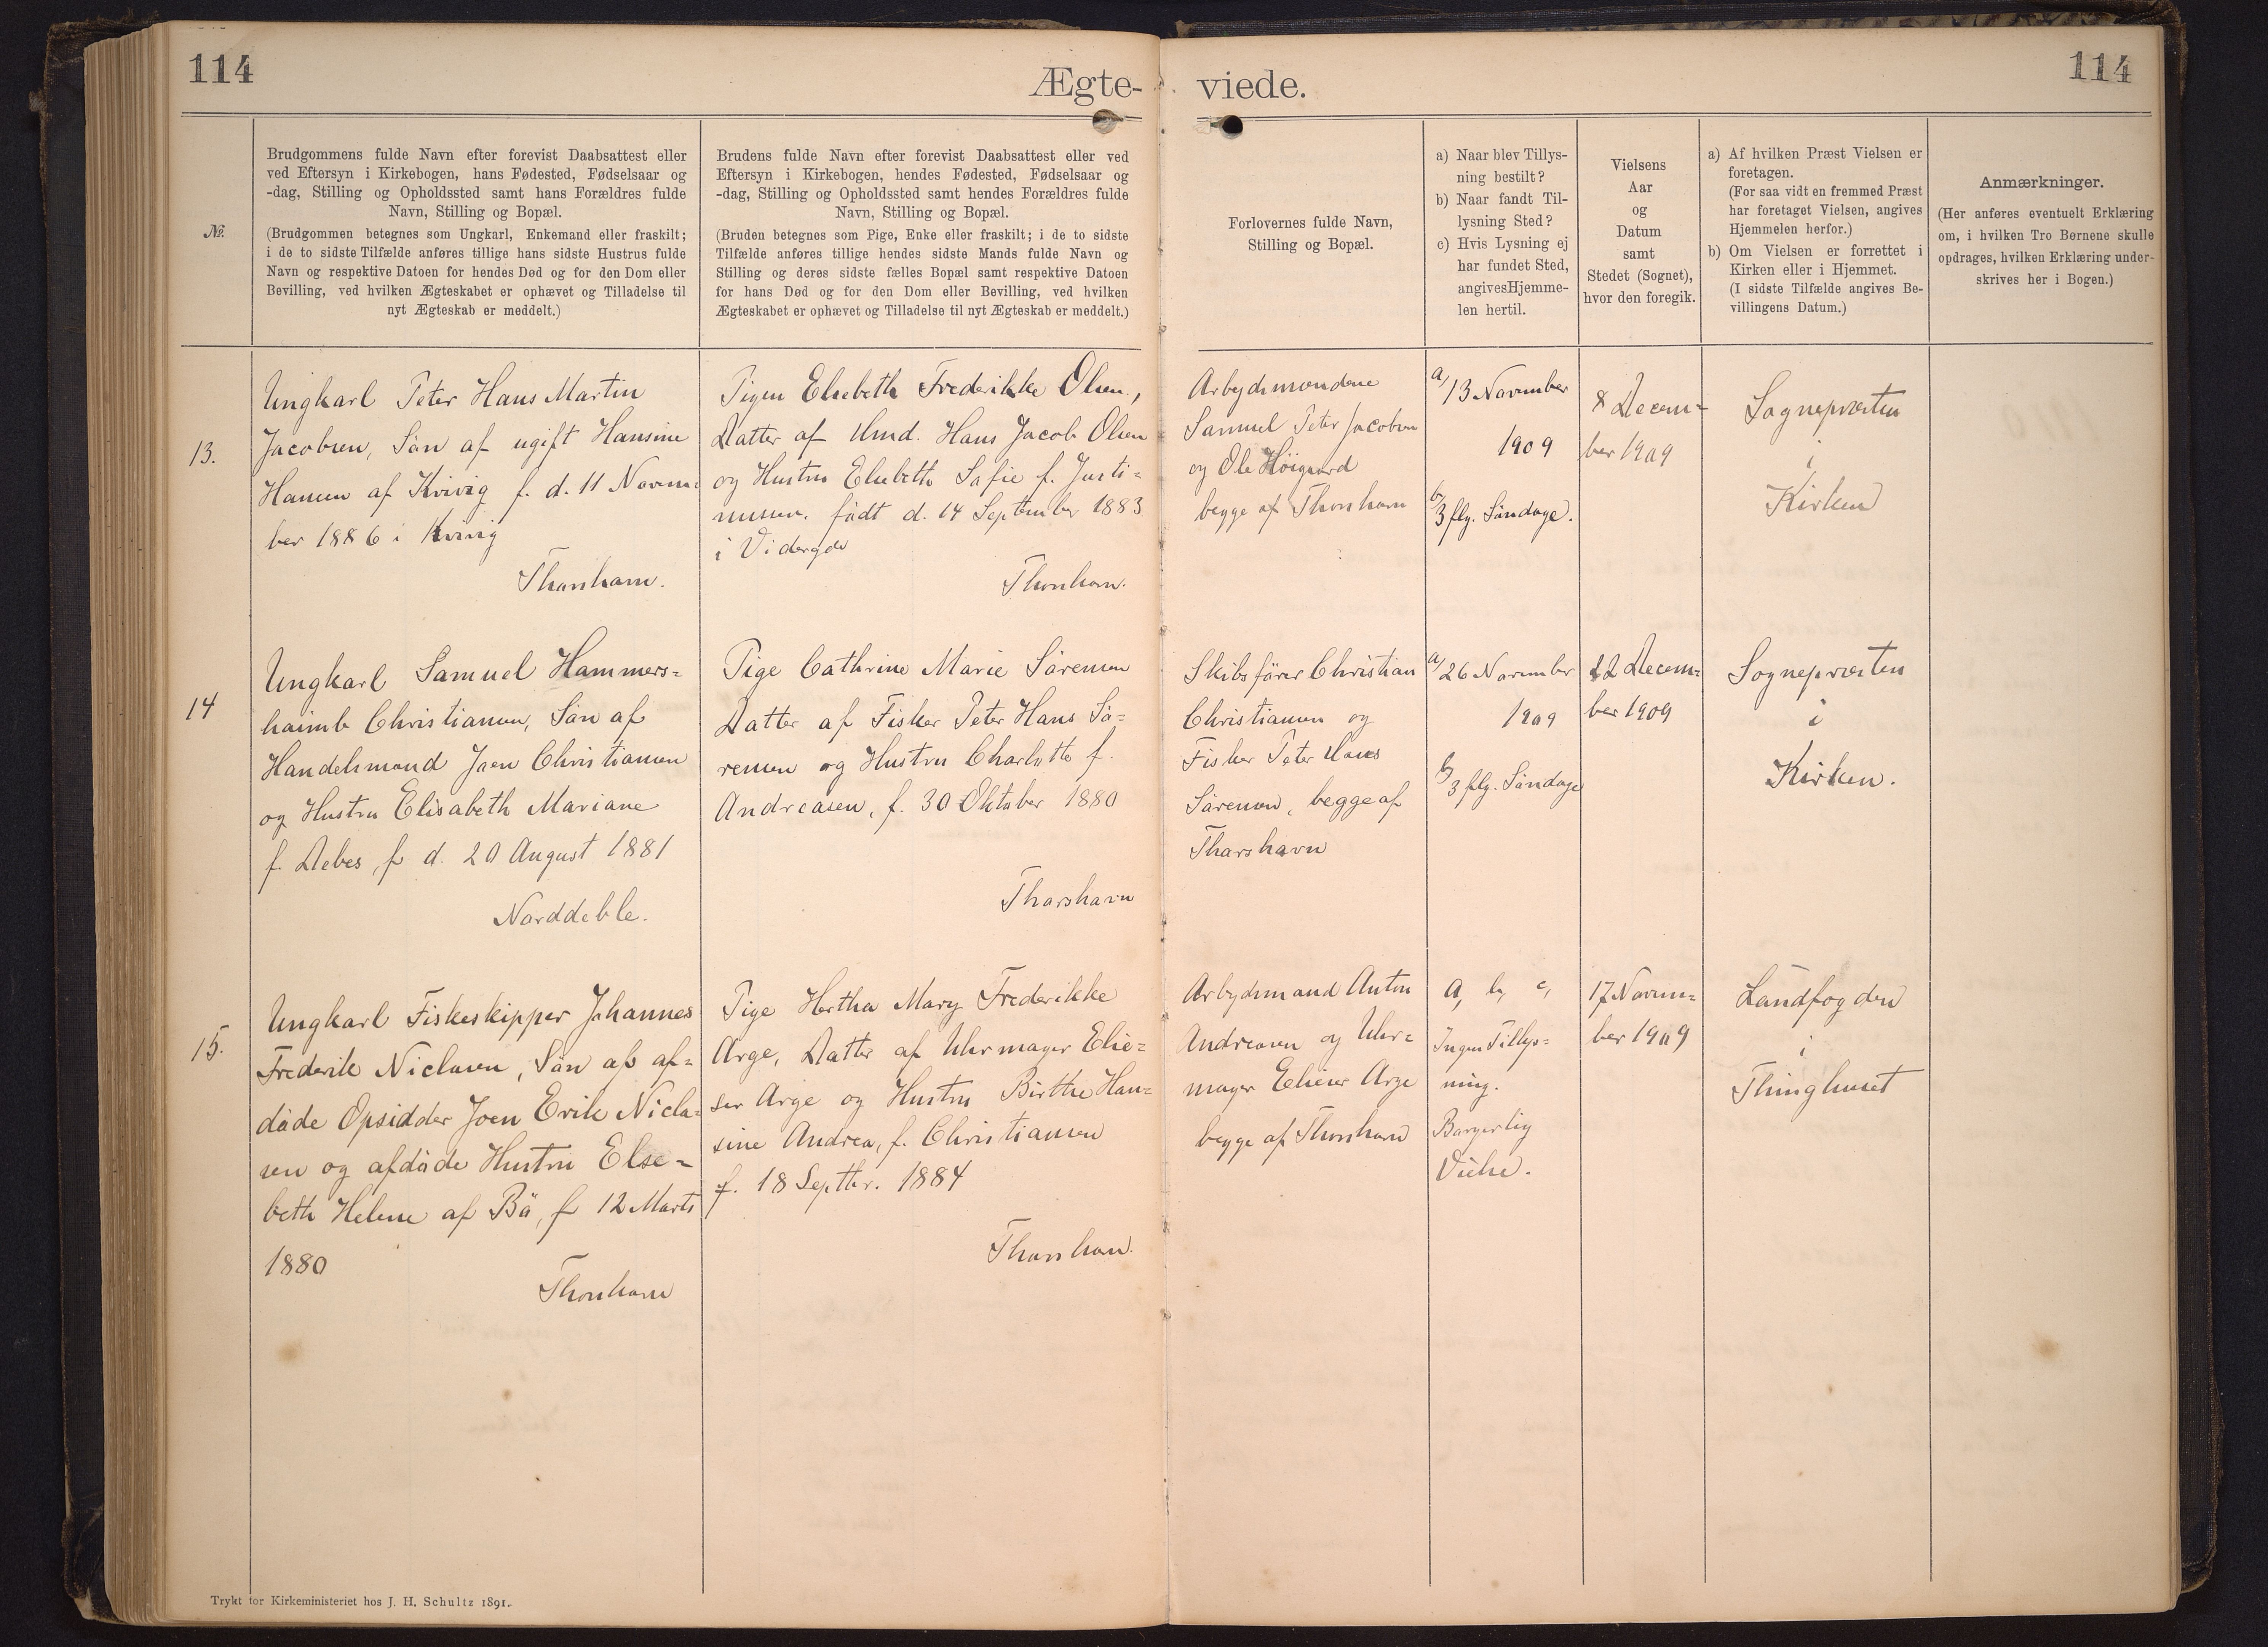 114
114
Ægte-
viede.
№.
Brudgommens fulde Navn efter forevist Daabsattest eller
ved Eftersyn i Kirkebogen, hans Fødested, Fødselsaar og
-dag, Stilling og Opholdssted samt hans Forældres fulde
Navn, Stilling og Bopæl.
(Brudgommen betegnes som Ungkarl, Enkemand eller fraskilt;
i de to sidste Tilfælde anføres tillige hans sidste Hustrus fulde
Navn og respektive Datoen for hendes Død og for den Dom eller
Bevilling, ved hvilken Ægteskabet er ophævet og Tilladelse til
nyt Ægteskab er meddelt.)
Brudens fulde Navn efter forevist Daabsattest eller ved
Eftersyn i Kirkebogen, hendes Fødested, Fødselsaar og
-dag, Stilling og Opholdssted samt hendes Forældres fulde
Navn, Stilling og Bopæl.
(Bruden betegnes som Pige, Enke eller fraskilt; i de to sidste
Tilfælde anføres tillige hendes sidste Mands fulde Navn og
Stilling og deres sidste fælles Bopæl samt respektive Datoen
for hans Død og for den Dom eller Bevilling, ved hvilken
Ægteskabet er ophævet og Tilladelse til nyt Ægteskab er meddelt.)
Forlovernes fulde Navn,
Stilling og Bopæl.
a) Naar blev Tillys-
ning bestilt?
b) Naar fandt Til-
lysning Sted?
c) Hvis Lysning ej
har fundet Sted,
angivesHjemme-
len hertil.
Vielsens
Aar
og
Datum
samt
Stedet (Sognet),
hvor den foregik.
a) Af hvilken Præst Vielsen er
foretagen.
(For saa vidt en fremmed Præst
har foretaget Vielsen, angives
Hjemmelen herfor.)
b) Om Vielsen er forrettet i
Kirken eller i Hjemmet.
(I sidste Tilfælde angives Be-
villingens Datum.)
Anmærkninger.
(Her anføres eventuelt Erklæring
om, i hvilken Tro Børnene skulle
opdrages, hvilken Erklæring under-
skrives her i Bogen.)
13.
Ungkarl Peter Hans Martin
Jacobsen, Sön af ugift Hansine
Hansen af Kvivig f. d. 11 Novem-
ber 1886 i Kvivig
Thorshavn.
Pigen Elsebeth Frederikke Olsen,
Datter af Umd. Hans Jacob Olsen
og Hustru Elsebeth Sofie f. Justi-
nussen. födt d. 14 September 1883
i Videreide
Thorshavn.
Arbejdsmændene
Samuel Peter Jacobsen
og Ole Höigaard
begge af Thorshavn
a/ 13 November
1909
b/ 3 flg. Söndage.
8 Decem-
ber 1909
Sognepræsten
i
Kirken
14
Ungkarl Samuel Hammers-
haimb Christiansen, Sön af
Handelsmand Joen Christiansen
og Hustru Elisabeth Mariane
f. Debes, f. d. 20 August 1881
Norddeble.
Pige Cathrine Marie Sörensen
Datter af Fisker Peter Hans Sö-
rensen og Hustru Charlotte f.
Andreasen, f. 30 Oktober 1880
Thorshavn
Skibsförer Christian
Christiansen og
Fisker Peter Hans
Sörensen, begge af
Thorshavn
a/ 26 November
1909
b/ 3 flg. Söndage
22 Decem-
ber 1909
Sognepræsten
i
Kirken.
15.
Ungkarl Fiskeskipper Johannes
Frederik Niclasen, Sön af af-
döde Opsidder Joen Erik Nicla-
sen og afdöde Hustru Else-
beth Helene af Bö, f. 12 Marts
1880
Thorshavn
Pige Hertha Mary Frederikke
Arge, Datter af Uhrmager Elie-
ser Arge og Hustru Birthe Han-
sine Andrea, f. Christiansen
f. 18 Septbr. 1884
Thorshavn.
Arbejdsmand Anton
Andreasen og Uhr-
mager Elieser Arge
begge af Thorshavn
a, b, c,
Ingen Tillys-
ning.
Borgerlig
Vielse.
17 Novem-
ber 1909
Landfogden
i
Thinghuset
Trykt for Kirkeministeriet hos J. H. Schultz 1891.